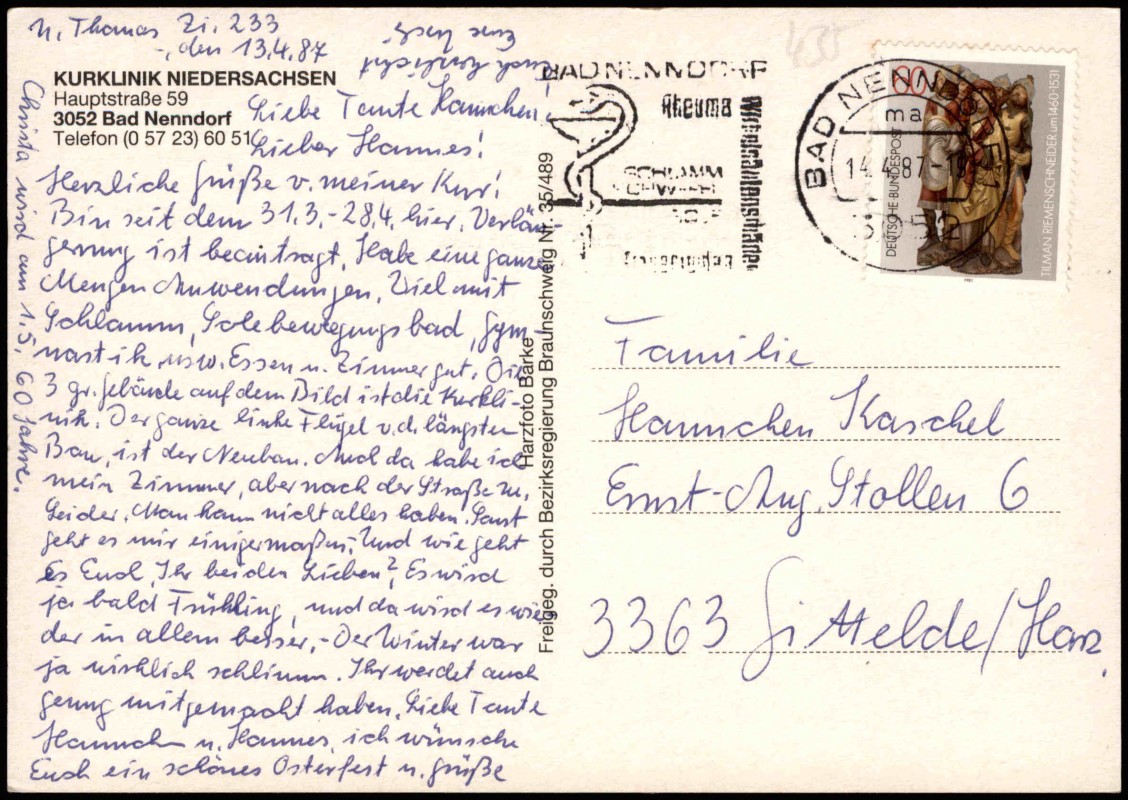 N. Thomas Zi. 233
-, den 13.4.87
KURKLINIK NIEDERSACHSEN
Hauptstraße 59
3052 Bad Nenndorf
Telefon (0 57 23) 60 51
Liebe Tante Hannchen,
Lieber Hannes!
Herzliche Grüße v. meiner Kur!
Bin seit dem 31.3.-28.4. hier. Verlän-
gerung ist beantragt, Habe eine ganze
Mengen Anwendungen, Viel mit
Schlamm, Solebewegungsbad, Gym-
nastik, usw. Essen u. Zimmer gut. Die
3 gr. Gebäude auf dem Bild ist die Kurkli-
nik. Der ganze linke Flügel v. d. längsten
Bau, ist der Neubau. Auch da habe ich
mein Zimmer, aber nach der Straße zu,
Leider. Man kann nicht alles haben. Sonst
geht es mir einigermaßen, Und wie geht
es Euch, Ihr beiden Lieben? Es wird
ja bald Frühling, und da wird es wie-
der in allem besser,- Der Winter war
ja wirklich schlimm. Ihr werdet auch
genug mitgemacht haben, Liebe Tante
Hannch u. Hannes, ich wünsche
Euch ein schönes Osterfest u. grüße
Euch herzlichst
Eure
Christa wird am 1.5. 60 Jahre.
Harzfoto Barke
Freigeg. durch Bezirksregierung Braunschweig Nr. 35/489
BAD NENNDORF
Rheuma
Wirbelsäulenschäden
SCHLAMM
SCHWEFEL
SOLE
430
BAD NENNDORF 1
ma
14.4.87-18
3052
80
DEUTSCHE BUNDESPOST
TILMAN RIEMENSCHNEIDER um 1460-1531
1981
Familie
Hannchen Kaschel
Ernst-Aug. Stollen 6
3363 Gittelde/Harz